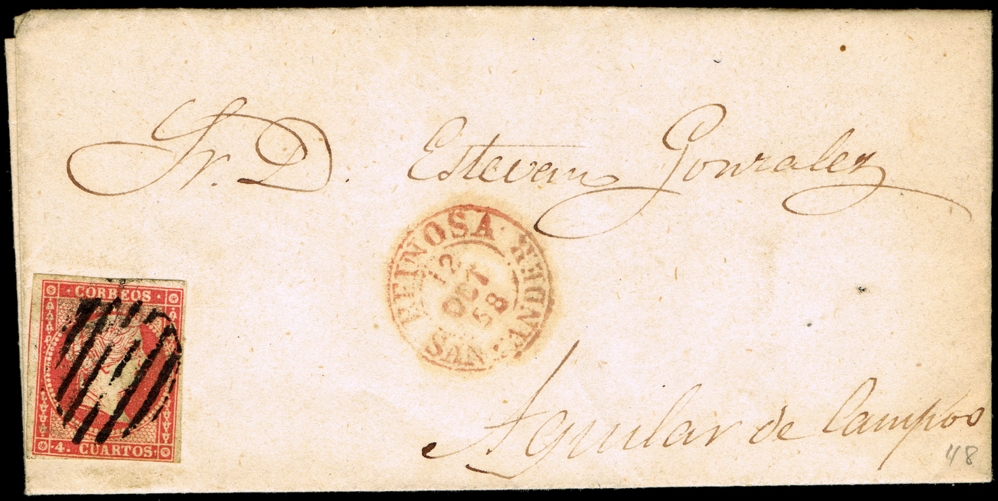 Sr. D. Estevan Gonzalez
REINOSA
12
OCT
58
SANTANDER
CORREOS
4. CUARTOS
Aguilar de Campoo
48